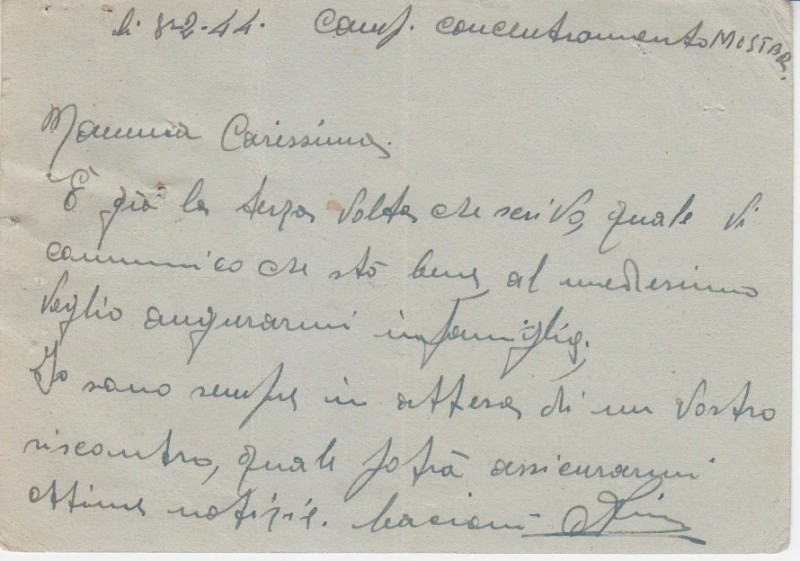 li 8-2-44. Camp. concentramento MOSTAR.
Mamma Carissima.
È già la terza volta che scrivo, quale vi
communico che stò bene al medesimo
voglio augurarmi in famiglia,
Io sono sempre in attesa di un vostro
riscontro, quale potrà assicurarmi
ottime notizie. bacioni